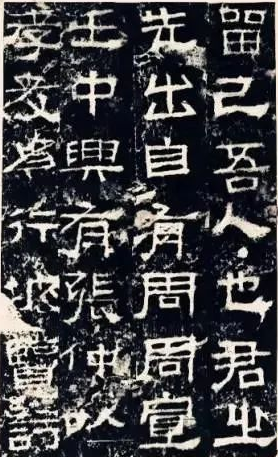 留己吾人也君之
先出自有周周宣
王中興有張仲以
孝友為行披覽詩